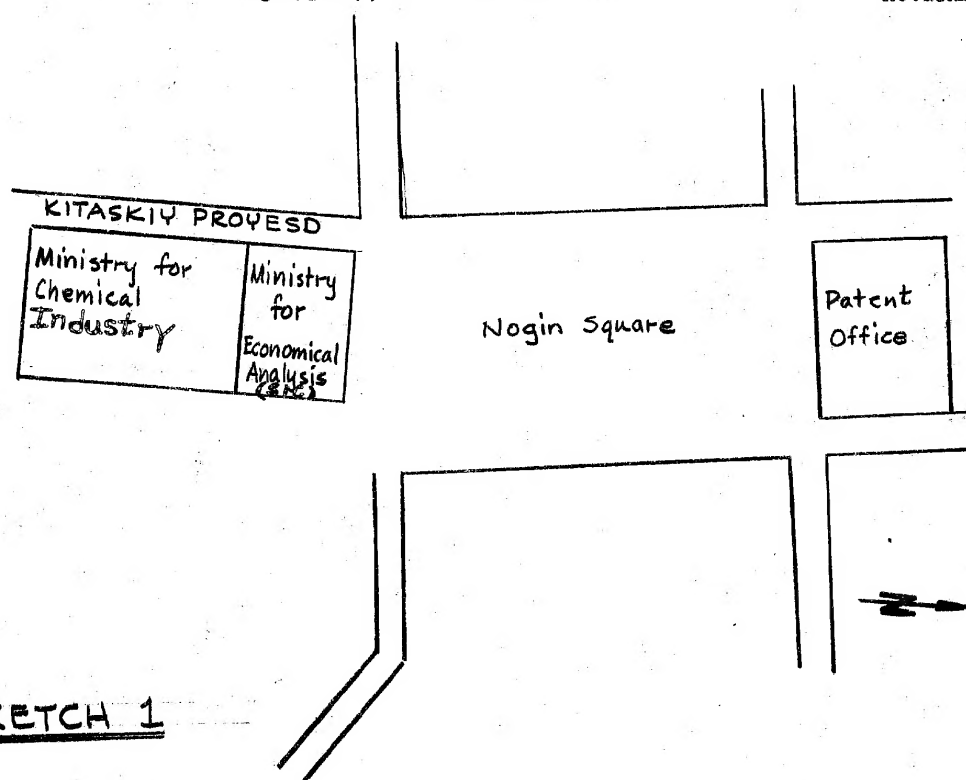 KITASKIY PROYESD
Ministry for
Chemical
Industry
Ministry
for
Economical
Analysis
Nogin Square
Patent
Office
N
KETCH 1